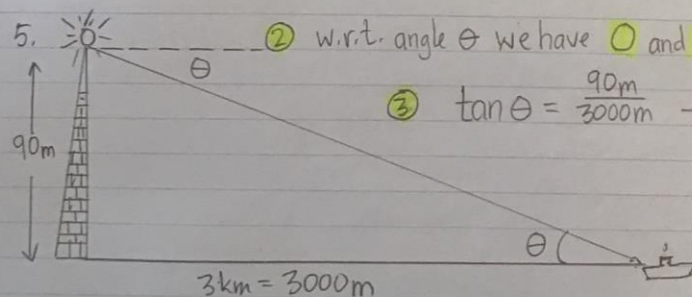 5. ② w.r.t. angle θ we have O and
θ
③ tan θ = 90m / 3000m -
90m
θ
3km = 3000m